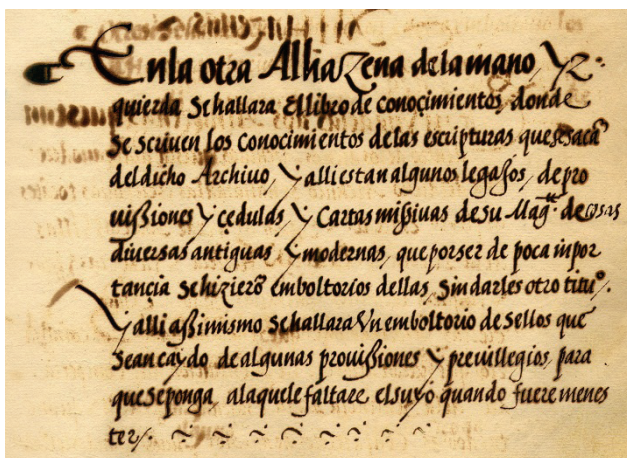 Enla otra Alhazena dela mano, Yz-
quierda Sehallara Ellibro de conoçimientos, donde
Se scriuen los conocimientos delas escripturas quesesacã
deldicho Archiuo, Y alliestan algunos legajos, depro
uissiones Y çedulas Y Cartas missiuas desu Mag.t de cosas
diuersas antiguas Y modernas, queporser de poca inpor
tançia Sehizierõ emboltorios dellas, Sindarles otro tituº/.
Yalli assimismo Sehallara Vn emboltorio de Sellos que
Seancaydo dealgunas prouissiones Y preuillegios, para
queseponga, alaquele faltare elsuyo quando fuere menes
ter/.